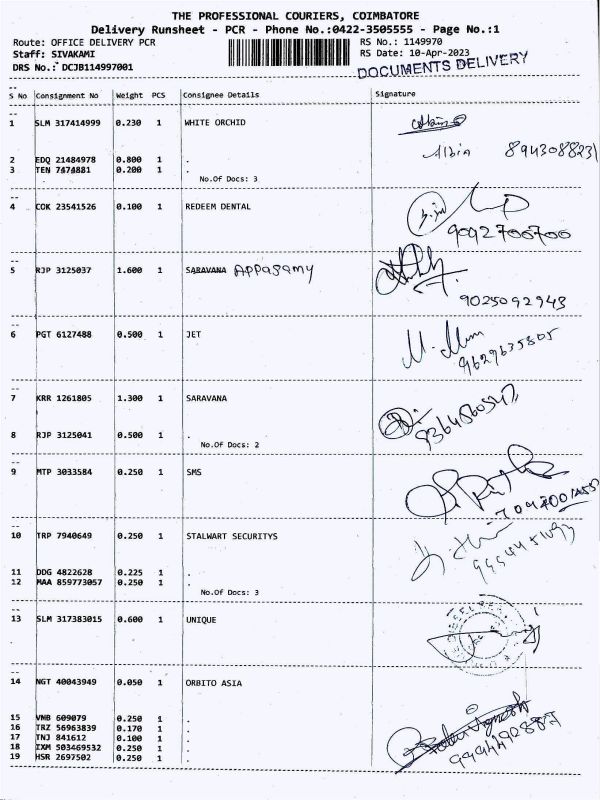 THE PROFESSIONAL COURIERS, COIMBATORE
Delivery Runsheet - PCR - Phone No.:0422-3505555 - Page No.:1
Route: OFFICE DELIVERY PCR RS No.: 1149970
Staff: SIVAKAMI RS Date: 10-Apr-2023
DRS No.: DCJB114997001 DOCUMENTS DELIVERY
S No Consignment No Weight PCS Consignee Details Signature
1 SLM 317414999 0.230 1 WHITE ORCHID
Albia 8943088231
2 EDQ 21484978 0.800 1 .
3 TEN 7474881 0.200 1 .
No.Of Docs: 3
4 COK 23541526 0.100 1 REDEEM DENTAL
9092700700
5 RJP 3125037 1.600 1 SARAVANA Appasamy
9025092943
6 PGT 6127488 0.500 1 JET
9629635805
7 KRR 1261805 1.300 1 SARAVANA
9364560547
8 RJP 3125041 0.500 1 .
No.Of Docs: 2
9 MTP 3033584 0.250 1 SMS
10 TRP 7940649 0.250 1 STALWART SECURITYS
11 DDG 4822628 0.225 1 .
12 MAA 859773057 0.250 1 .
No.Of Docs: 3
13 SLM 317383015 0.600 1 UNIQUE
14 NGT 40043949 0.050 1 ORBITO ASIA
15 VNB 609079 0.250 1 .
16 TRZ 56963839 0.170 1 .
17 TNJ 841612 0.100 1 .
18 IXM 503469532 0.250 1 .
19 HSR 2697502 0.250 1 .